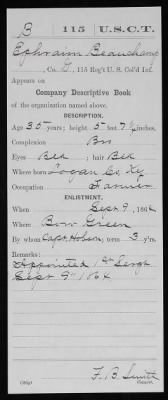 B 115 U.S.C.T.
Ephraim Beauchamp
, Co. G, 115 Reg't U. S. Col'd Inf.
Appears on
Company Descriptive Book
of the organization named above.
DESCRIPTION.
Age 35 years; height 5 feet 7½ inches
Complexion Bro
Eyes Blk ; hair Blk
Where born Logan Co, Ky
Occupation Farmer
ENLISTMENT.
When Sept. 9, 1864
Where Bow Green
By whom Capt. Hobson; term 3 y'rs.
Remarks:
Appointed 1st Sergt
Sept. 9th 1864
F. B. Smith
Copyist.